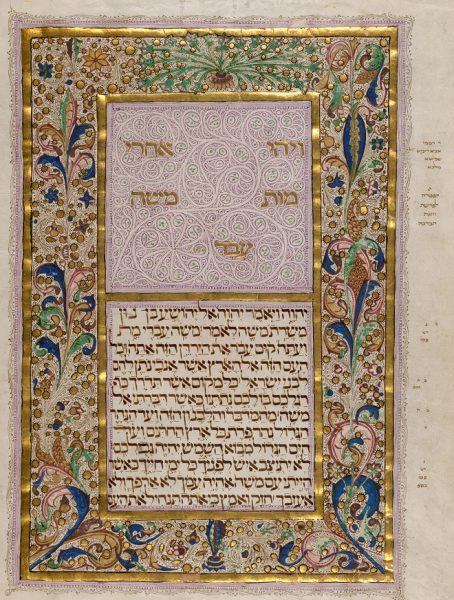 ויהי אחרי
מות משה
עבד
יהוה ויאמר יהוה אל יהושע בן נון
משרת משה לאמר משה עבדי מת
ועתה קום עבר את הירדן הזה אתה וכל
העם הזה אל הארץ אשר אנכי נתן להם
לבני ישראל כל מקום אשר תדרך כף
רגלכם בו לכם נתתיו כאשר דברתי אל
משה מהמדבר והלבנון הזה ועד הנהר
הגדול נהר פרת כל ארץ החתים ועד
הים הגדול מבוא השמש יהיה גבולכם
לא יתיצב איש לפניך כל ימי חייך כאשר
הייתי עם משה אהיה עמך לא ארפך ולא
אעזבך חזק ואמץ כי אתה תנחיל את העם